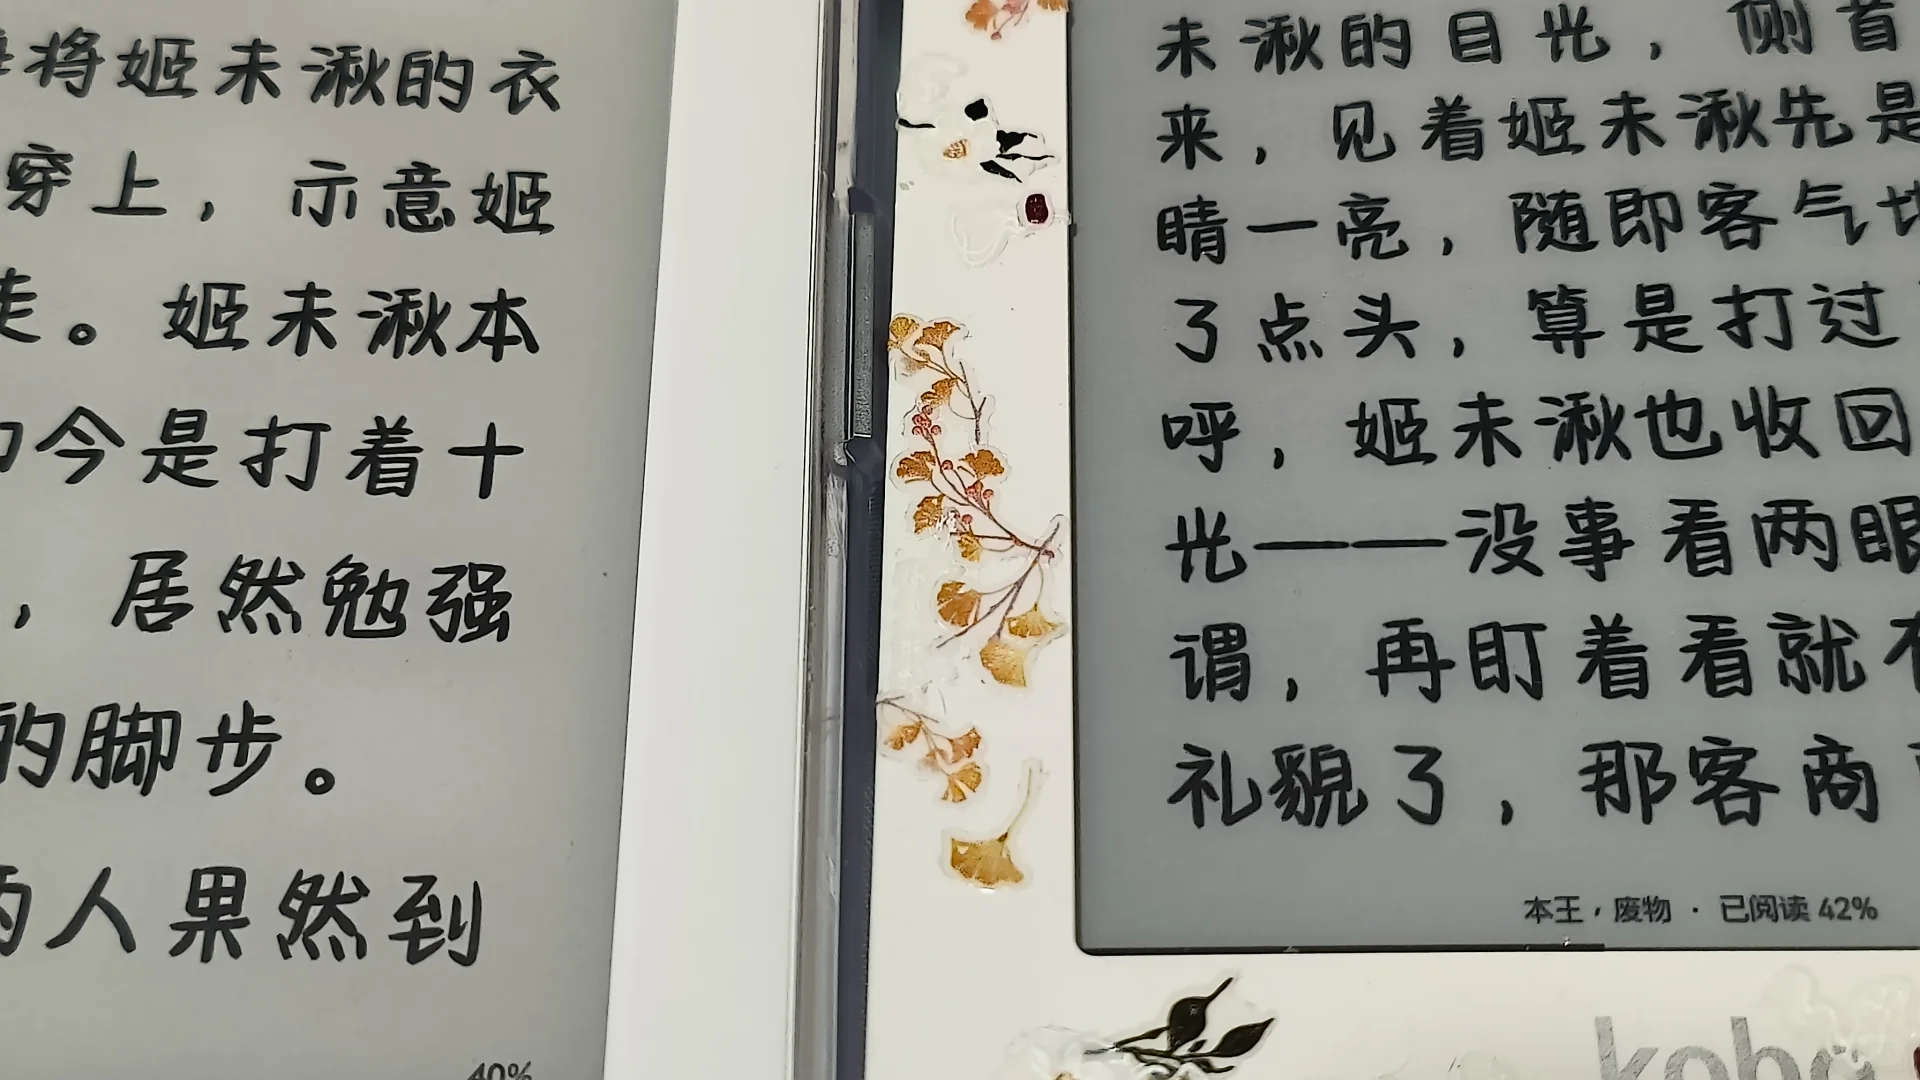 将姬未湫的衣
穿上，示意姬
走。姬未湫本
今是打着十
，居然勉强
的脚步。
两人果然到
40%
未湫的目光，侧首
来，见着姬未湫先是
睛一亮，随即客气地
了点头，算是打过
呼，姬未湫也收回
光——没事看两眼
谓，再盯着看就
礼貌了，那客商
本王，废物 · 已阅读 42%
kobo